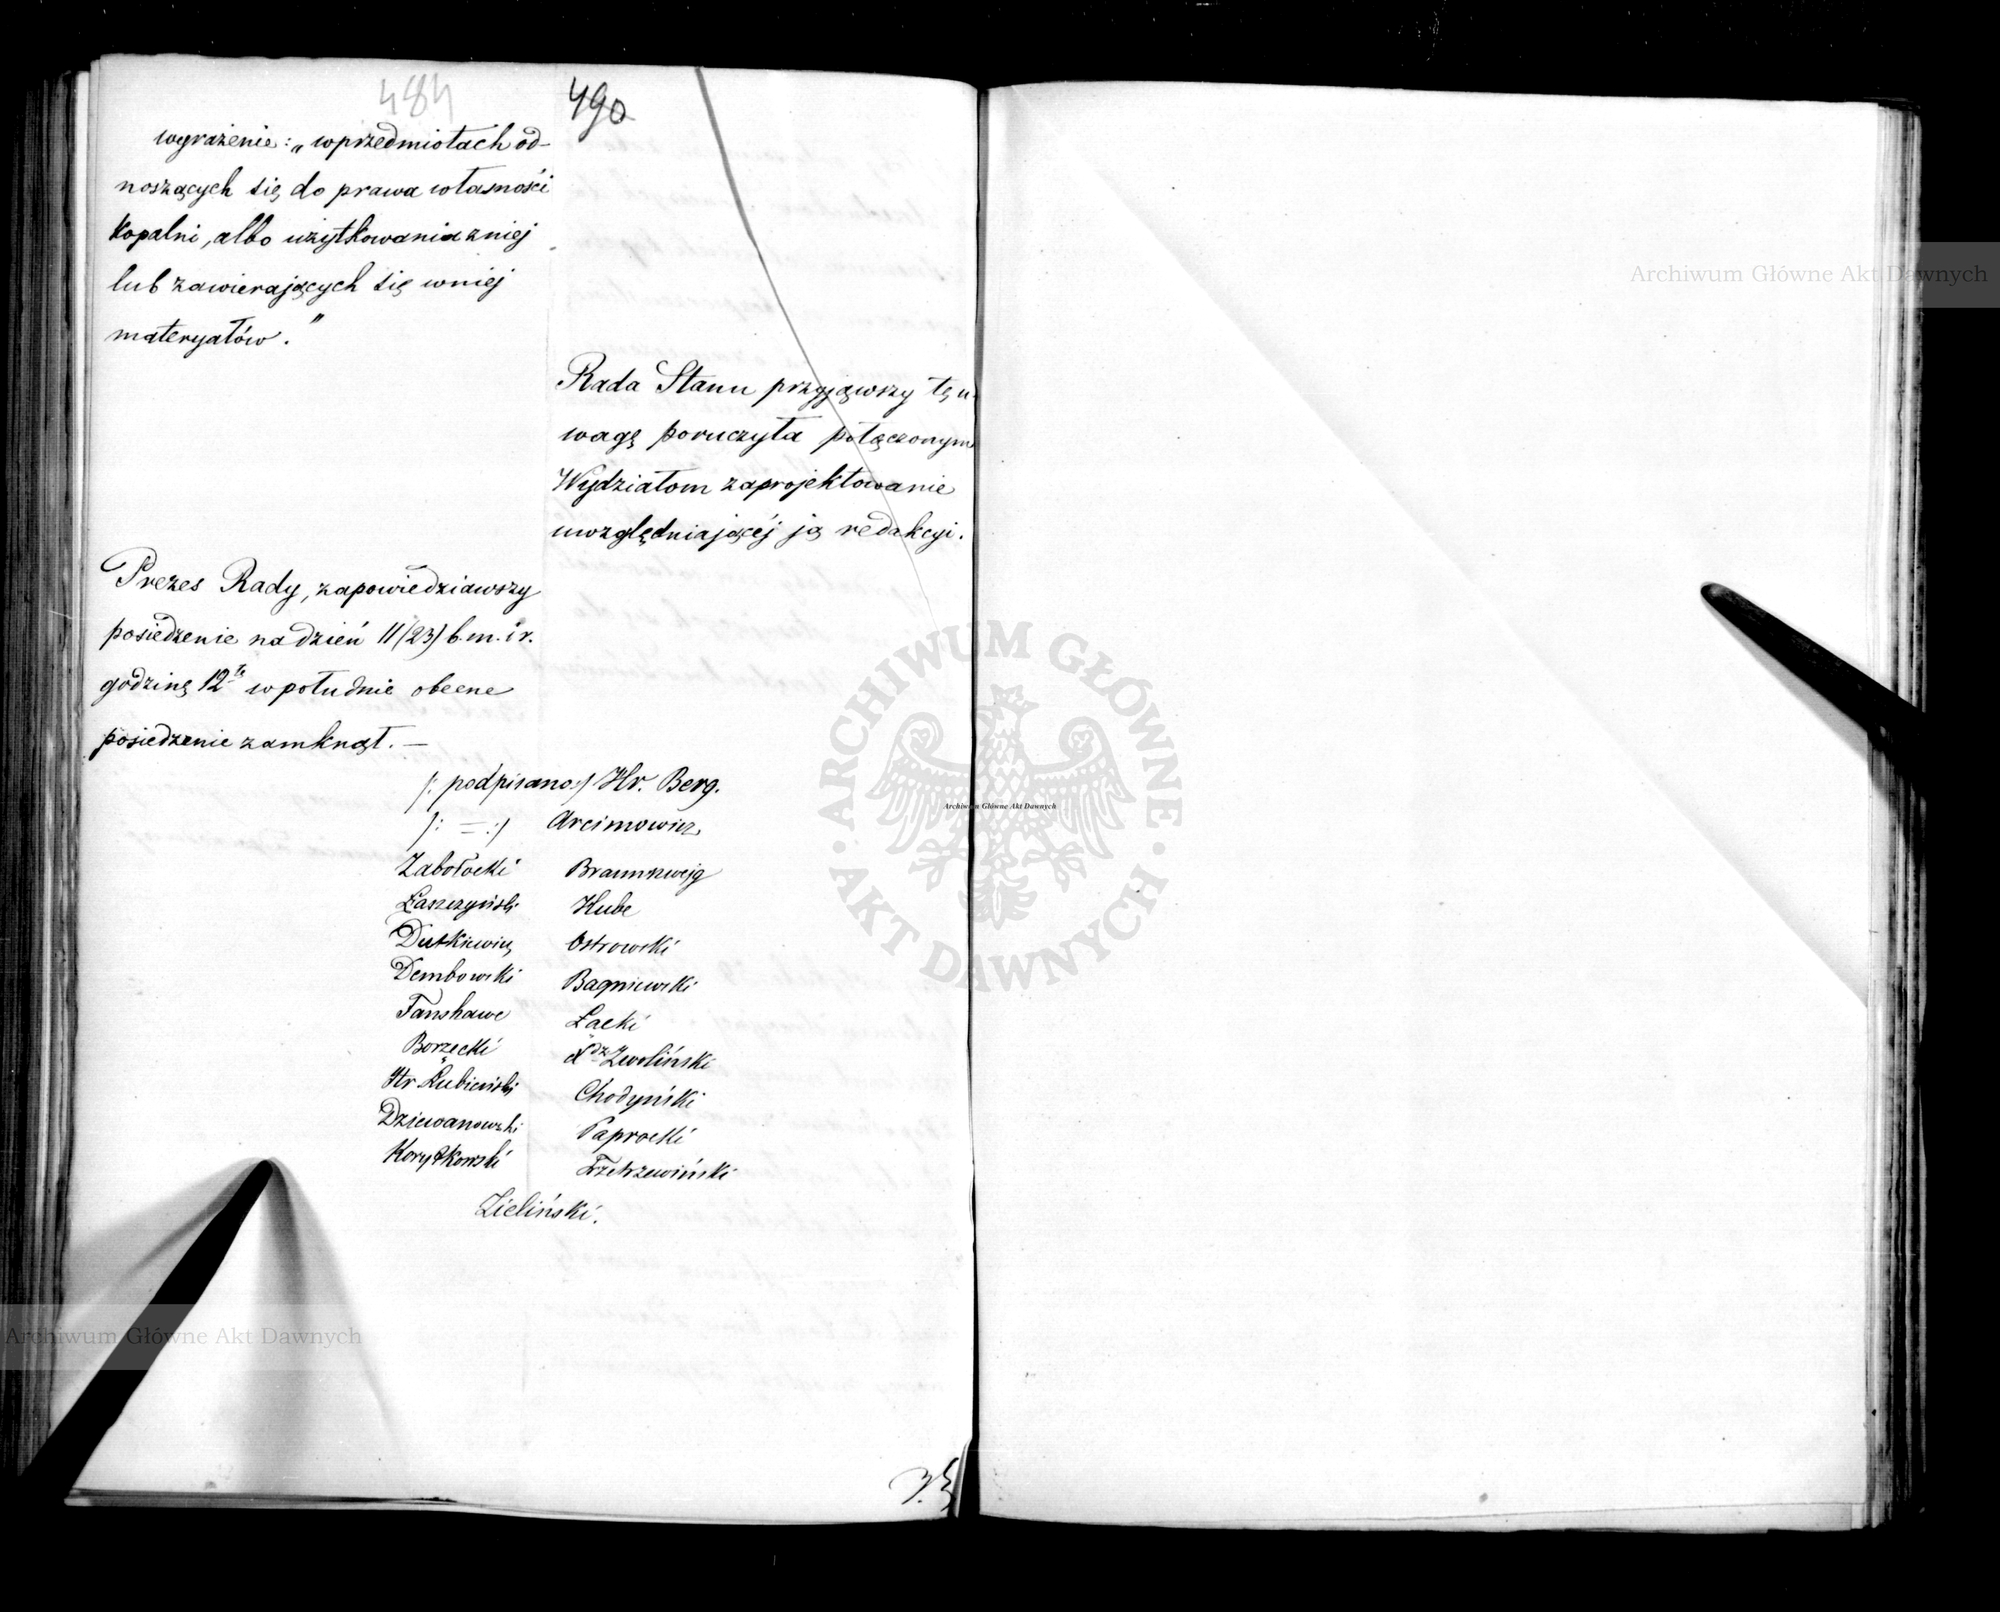 484
490
wyrażenie: „w przedmiotach od-
noszących się do prawa własności
kopalni, albo użytkowania z niej
lub zawierających się w niej
materyałów."
Rada Stanu przyjąwszy tę u-
wagę poruczyła połączonym
Wydziałom zaprojektowanie
uwzględniającéj ją redakcyi.
Prezes Rady, zapowiedziawszy
posiedzenie na dzień 11/23) b. m. i r.
godzinę 12tą w południe obecne
posiedzenie zamknął. —
/: podpisano:/ Hr. Berg.
/: = :/ Arcimowicz
Zabołocki Braunszwejg
Łaszczyński Hube
Dutkiewicz Ostrowski
Dembowski Bagniewski
Fanshawe Łacki
Borzęcki Xdz Zwoliński
Hr Łubieński Chodyński
Dziewanowski Paprocki
Korytkowski Trzetrzewiński
Zieliński.
Archiwum Główne Akt Dawnych
ARCHIWUM GŁÓWNE AKT DAWNYCH
Archiwum Główne Akt Dawnych
Archiwum Główne Akt Dawnych